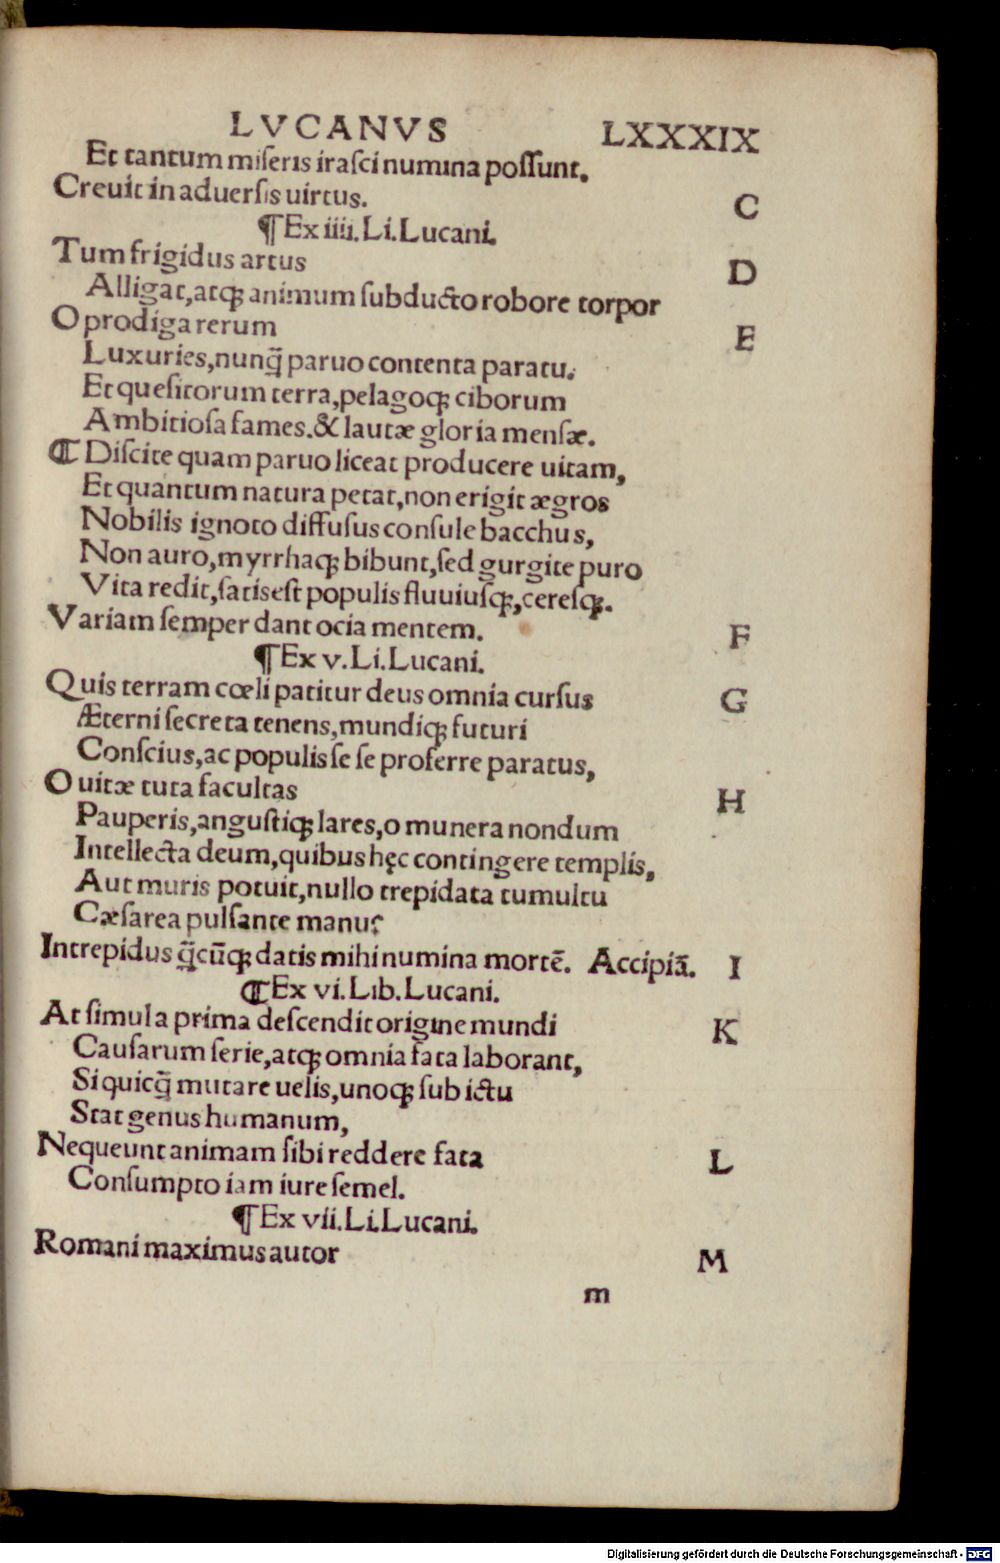 LVCANVS LXXXIX
Et tantum miſeris iraſci numina poſſunt.
Creuit in aduerſis uirtus. C
¶Ex iiii.Li.Lucani.
Tum frigidus artus D
Alligat,atqꝫ animum ſubducto robore torpor
O prodiga rerum E
Luxuries,nunq̃ paruo contenta paratu.
Et queſitorum terra,pelagoqꝫ ciborum
Ambitioſa fames.& lautæ gloria menſæ.
¶ Diſcite quam paruo liceat producere uitam,
Et quantum natura petat,non erigit ægros
Nobilis ignoto diffuſus conſule bacchus,
Non auro,myrrhaqꝫ bibunt,ſed gurgite puro
Vita redit,ſatis eſt populis fluuiuſqꝫ,cereſqꝫ.
Variam ſemper dant ocia mentem. F
¶Ex v.Li.Lucani.
Quis terram cœli patitur deus omnia curſus G
Æterni ſecreta tenens,mundiqꝫ futuri
Conſcius,ac populis ſe ſe proferre paratus,
O uitæ tuta facultas H
Pauperis,anguſtiqꝫ lares,o munera nondum
Intellecta deum,quibus hęc contingere templis,
Aut muris potuit,nullo trepidata tumultu
Cæſarea pulſante manu?
Intrepidus q̃cūqꝫ datis mihi numina mortē. Accipiā. I
¶Ex vi.Lib.Lucani.
At ſimul a prima deſcendit origine mundi K
Cauſarum ſerie,atqꝫ omnia fata laborant,
Si quicq̃ mutare uelis,unoqꝫ ſub ictu
Stat genus humanum,
Nequeunt animam ſibi reddere fata L
Conſumpto iam iure ſemel.
¶Ex vii.Li.Lucani.
Romani maximus autor M
m
Digitalisierung gefördert durch die Deutsche Forschungsgemeinschaft - DFG